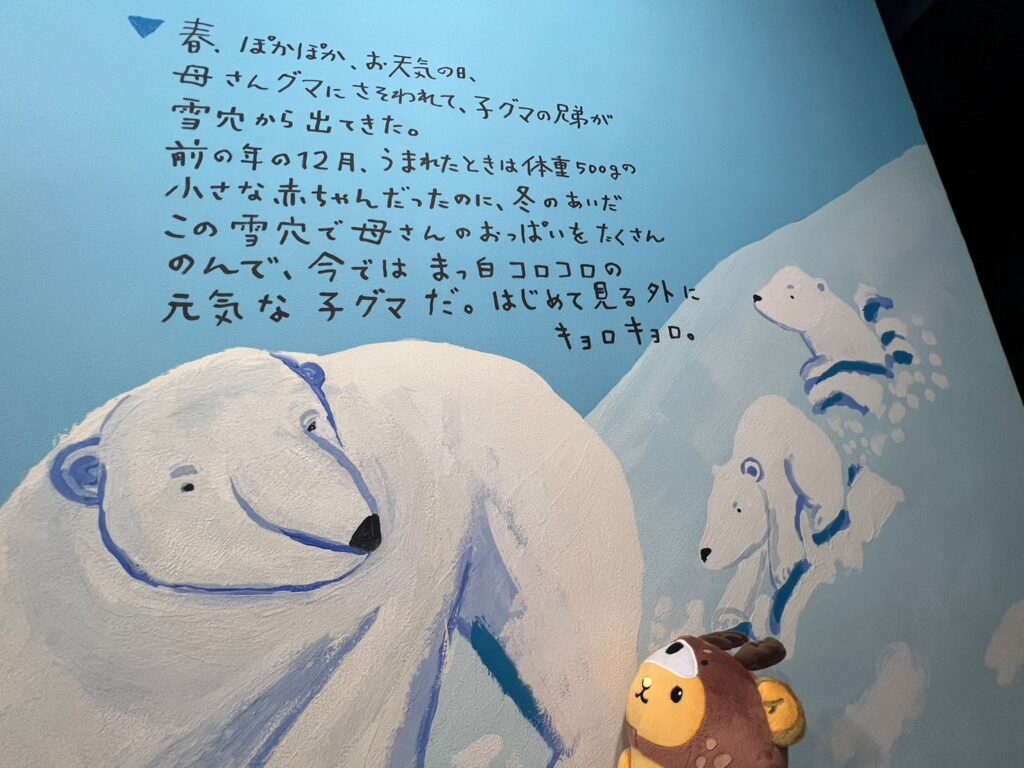 春、ぽかぽか、お天気の日、
母さんグマにさそわれて、子グマの兄弟が
雪穴から出てきた。
前の年の12月、うまれたときは体重500gの
小さな赤ちゃんだったのに、冬のあいだ
この雪穴で母さんのおっぱいをたくさん
のんで、今ではまっ白コロコロの
元気な子グマだ。はじめて見る外に
キョロキョロ。